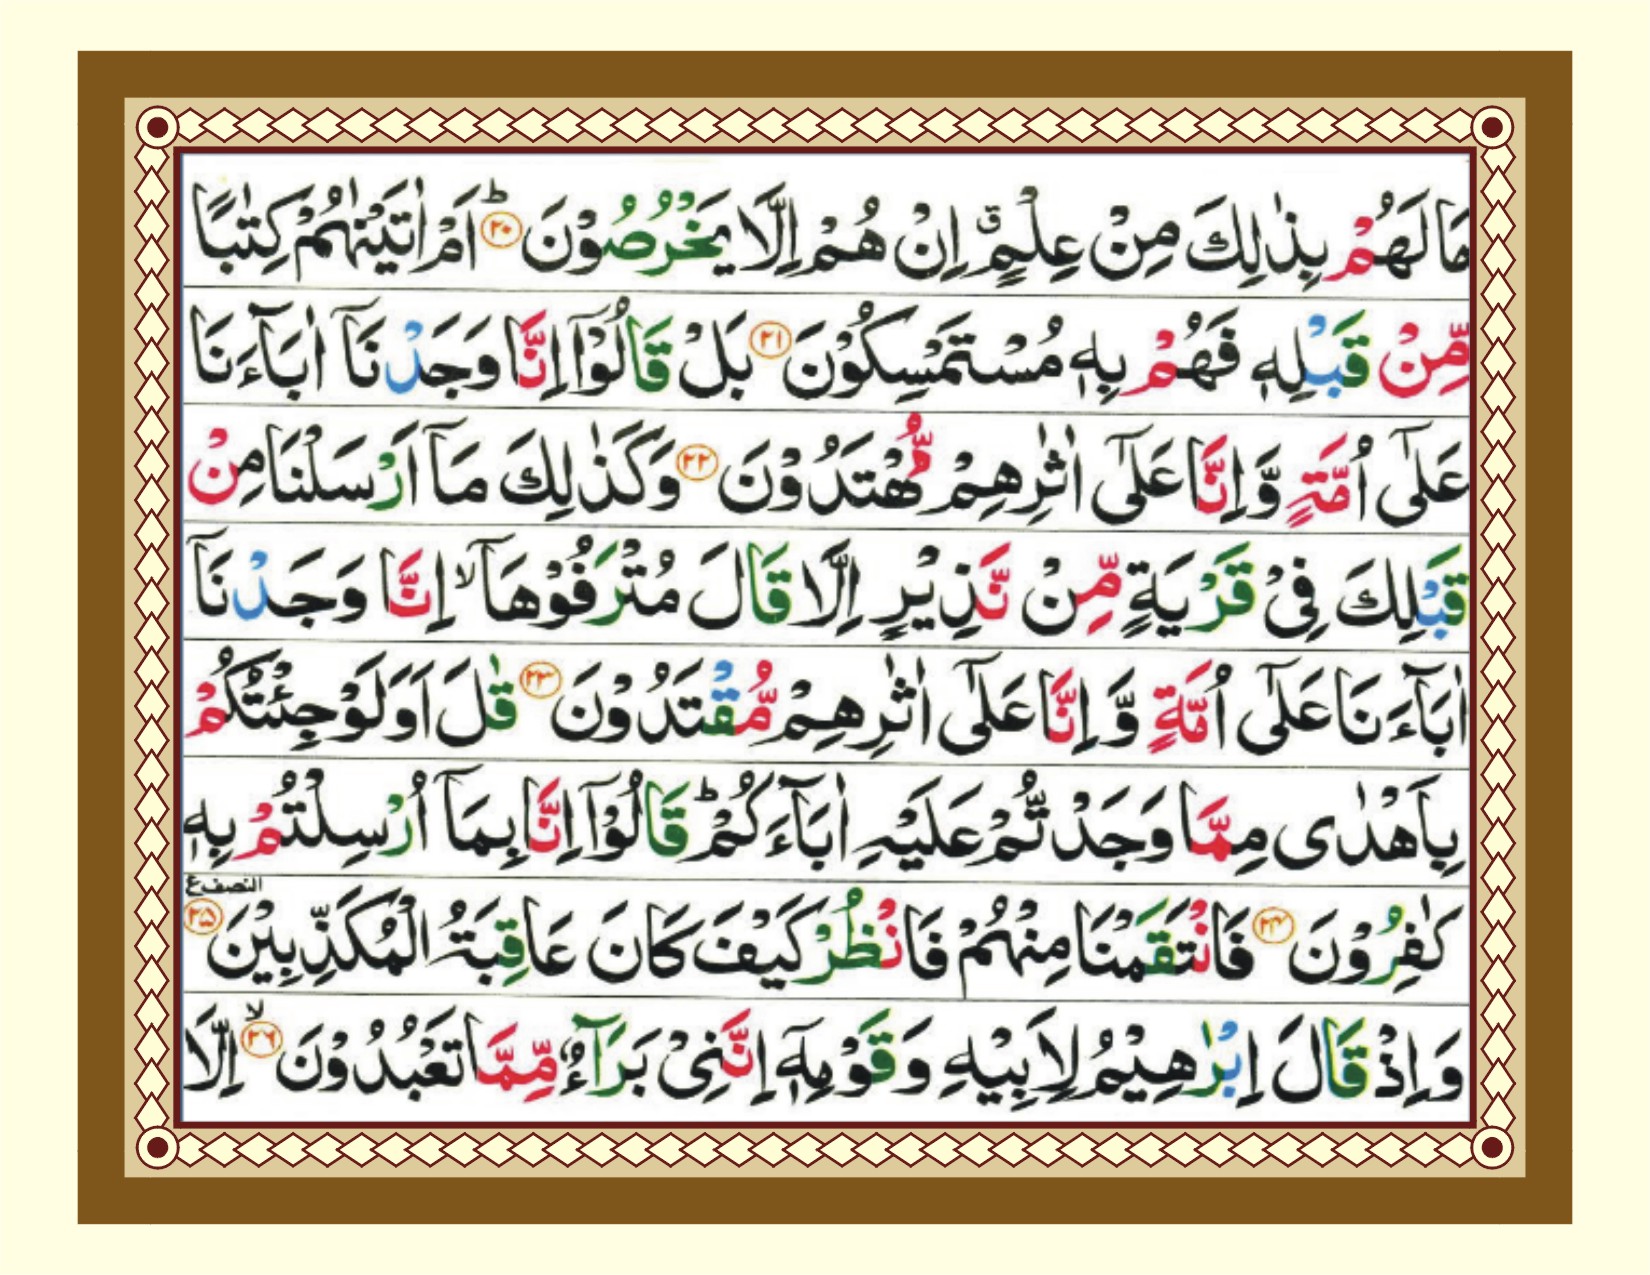 مَا لَهُمْ بِذٰلِكَ مِنْ عِلْمٍ ۗ اِنْ هُمْ اِلَّا يَخْرُصُوْنَ ؕ ﴿۲۰﴾ اَمْ اٰتَيْنٰهُمْ كِتٰبًا
مِّنْ قَبْلِهٖ فَهُمْ بِهٖ مُسْتَمْسِكُوْنَ ﴿۲۱﴾ بَلْ قَالُوْۤا اِنَّا وَجَدْنَاۤ اٰبَآءَنَا
عَلٰۤى اُمَّةٍ وَّ اِنَّا عَلٰۤى اٰثٰرِهِمْ مُّهْتَدُوْنَ ﴿۲۲﴾ وَكَذٰلِكَ مَاۤ اَرْسَلْنَا مِنْ
قَبْلِكَ فِىْ قَرْيَةٍ مِّنْ نَّذِيْرٍ اِلَّا قَالَ مُتْرَفُوْهَاۤ ۙ اِنَّا وَجَدْنَاۤ
اٰبَآءَنَا عَلٰۤى اُمَّةٍ وَّ اِنَّا عَلٰۤى اٰثٰرِهِمْ مُّقْتَدُوْنَ ﴿۲۳﴾ قٰلَ اَوَلَوْ جِئْتُكُمْ
بِاَهْدٰى مِمَّا وَجَدْتُّمْ عَلَيْهِ اٰبَآءَكُمْ ؕ قَالُوْۤا اِنَّا بِمَاۤ اُرْسِلْتُمْ بِهٖ
النصف ع
كٰفِرُوْنَ ﴿۲۴﴾ فَانْتَقَمْنَا مِنْهُمْ فَانْظُرْ كَيْفَ كَانَ عَاقِبَةُ الْمُكَذِّبِيْنَ ﴿۲۵﴾
وَ اِذْ قَالَ اِبْرٰهِيْمُ لِاَبِيْهِ وَ قَوْمِهٖۤ اِنَّنِىْ بَرَآءٌ مِّمَّا تَعْبُدُوْنَ ۙ ﴿۲۶﴾ اِلَّا